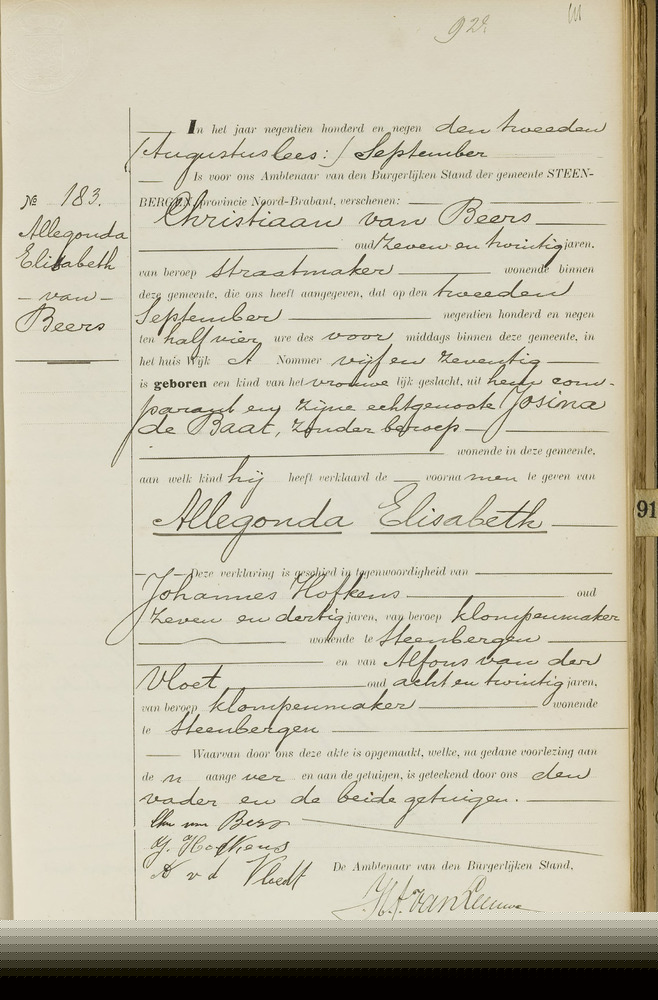 92
In het jaar negentien honderd en negen den tweeden
(Augustus lees:) September
Is voor ons Ambtenaar van den Burgerlijken Stand der gemeente STEEN-
BERGEN, provincie Noord-Brabant, verschenen:
Christiaan van Beers
oud zeven en twintig jaren,
van beroep straatmaker wonende binnen
deze gemeente, die ons heeft aangegeven, dat op den tweeden
September negentien honderd en negen
ten half vier ure des voor middags binnen deze gemeente, in
het huis Wijk A Nommer vijf en zeventig
is geboren een kind van het vrouwe lijk geslacht, uit hem com-
parant en zijne echtgenoote Josina
de Baat, zonder beroep
wonende in deze gemeente,
aan welk kind hij heeft verklaard de voorna men te geven van
Allegonda Elisabeth
Deze verklaring is geschied in tegenwoordigheid van
Johannes Hofkens oud
zeven en dertig jaren, van beroep klompenmaker
wonende te Steenbergen
en van Alfons van der
Vloet oud acht en twintig jaren,
van beroep klompenmaker wonende
te Steenbergen
Waarvan door ons deze akte is opgemaakt, welke, na gedane voorlezing aan
de n aange ver en aan de getuigen, is geteekend door ons den
vader en de beide getuigen.
Chr van Beers
J. Hofkens
A v d Vloedt
De Ambtenaar van den Burgerlijken Stand,
van Leeuwe
№ 183.
Allegonda
Elisabeth
- van -
Beers
91